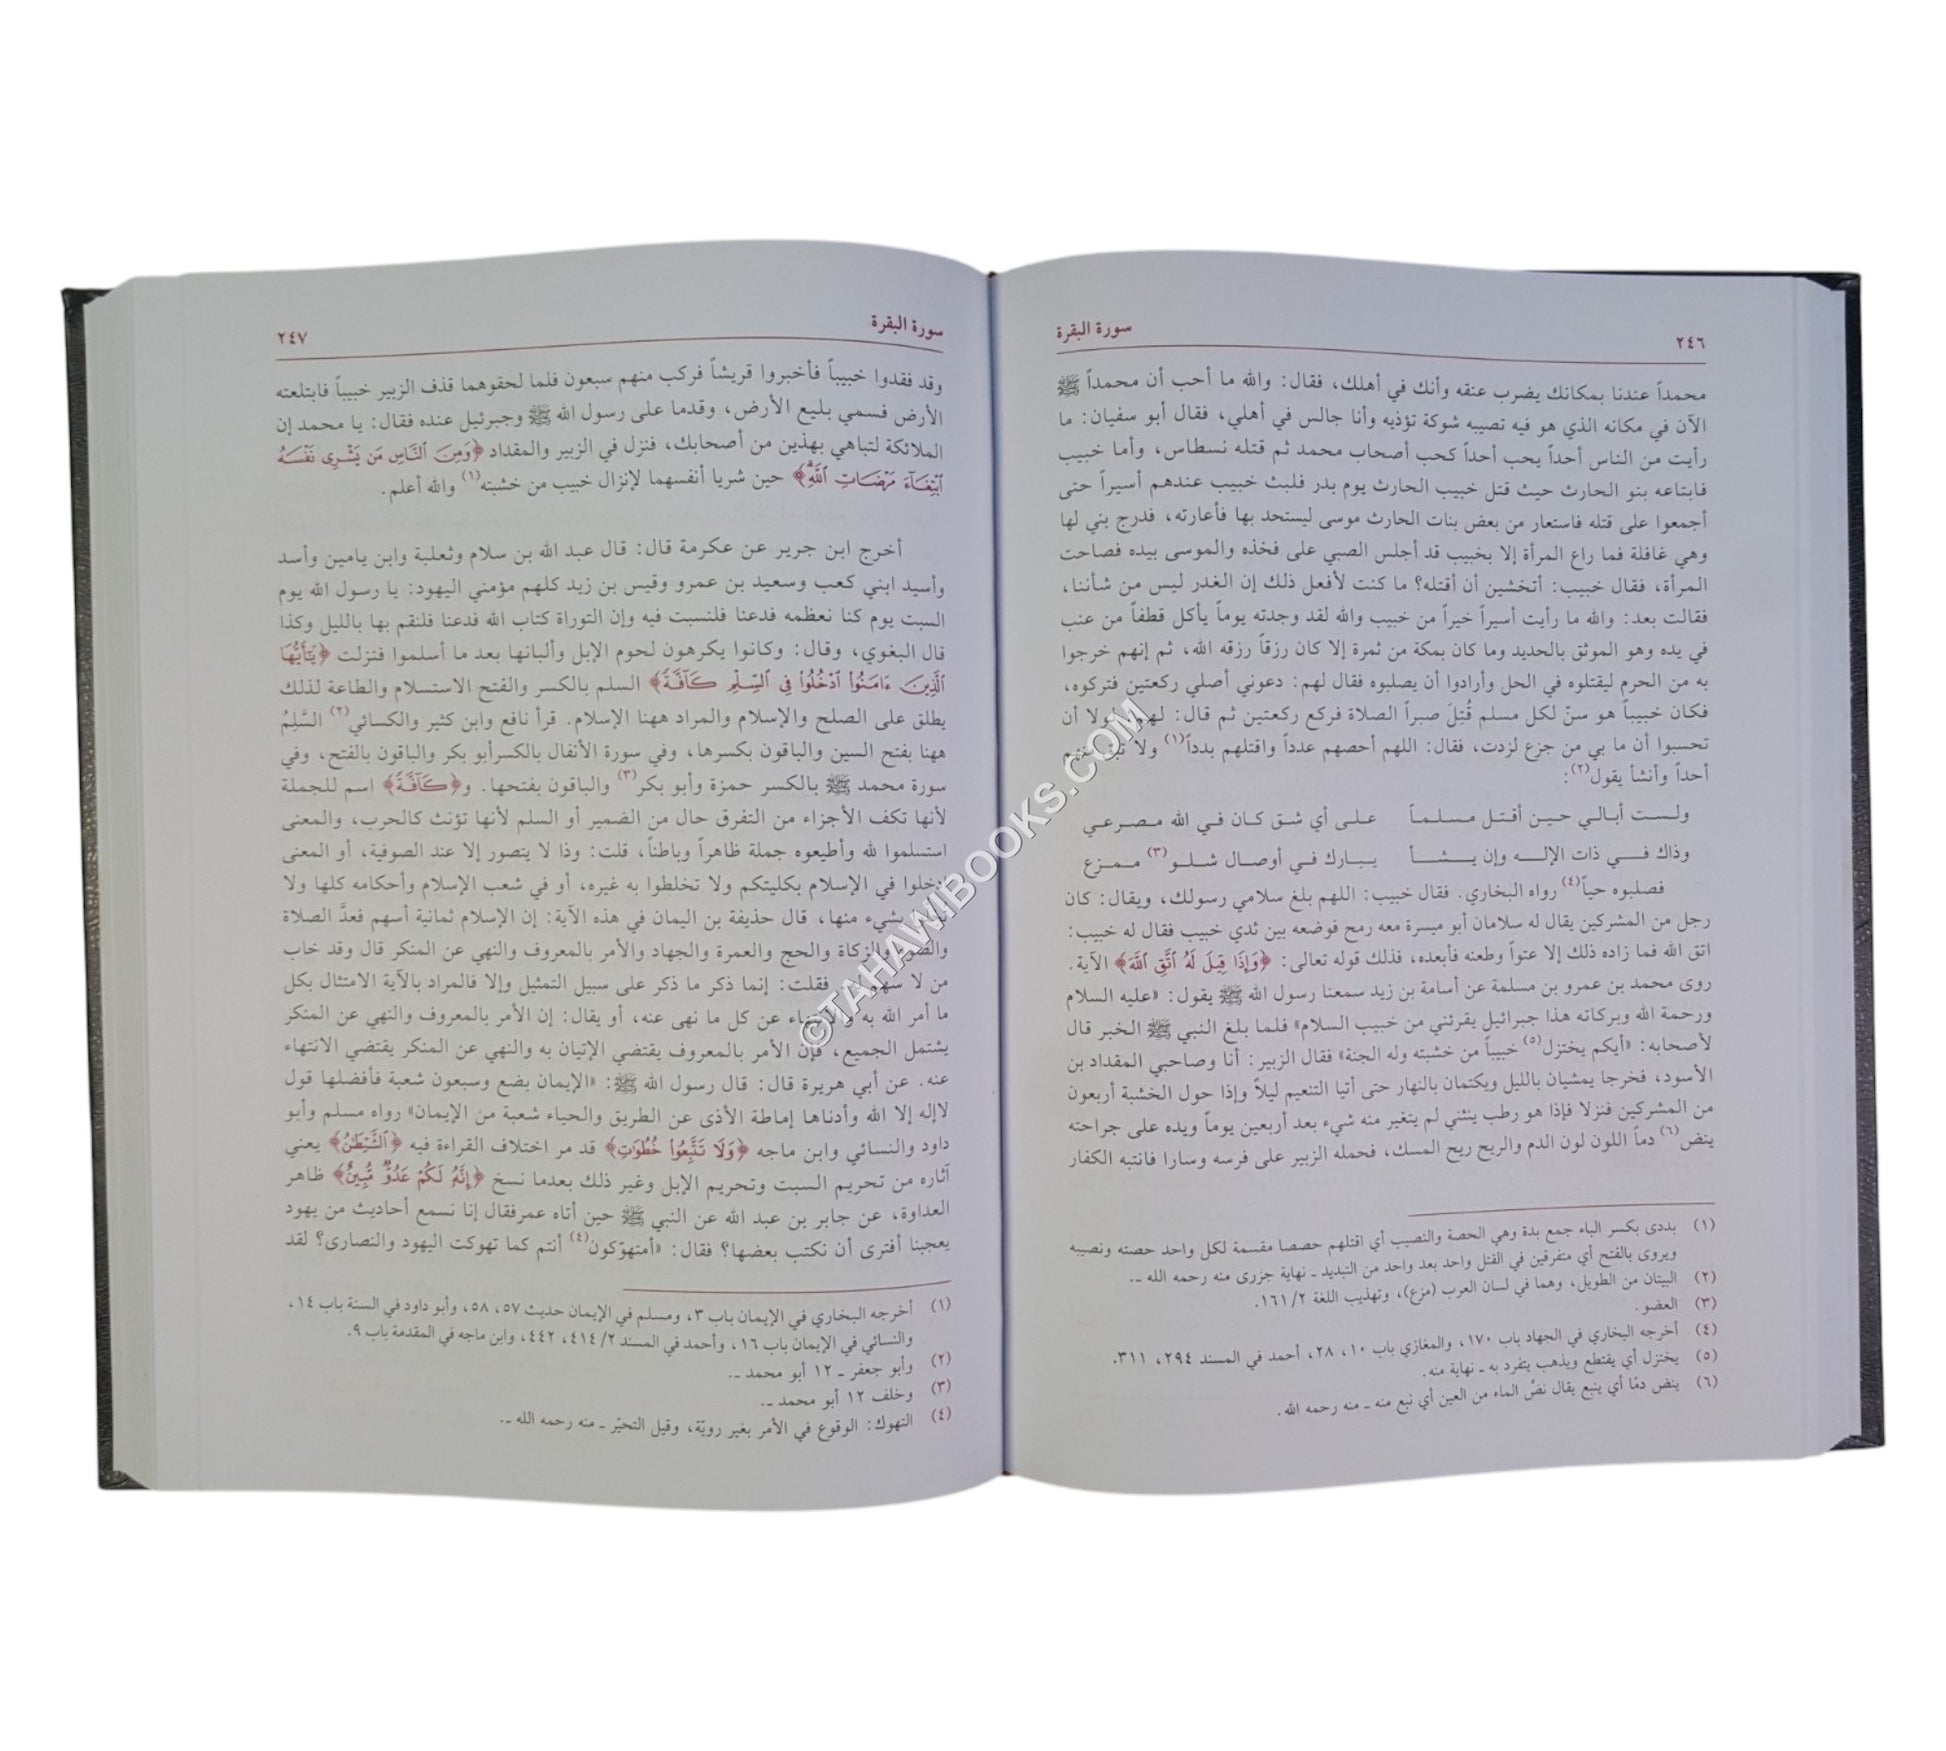 ٢٤٦
سورة البقرة
محمداً عندنا بمكانك يضرب عنقه وأنك في أهلك، فقال: والله ما أحب أن محمداً ﷺ
الآن في مكانه الذي هو فيه تصيبه شوكة تؤذيه وأنا جالس في أهلي، فقال أبو سفيان: ما
رأيت من الناس أحداً يحب أحداً كحب أصحاب محمد ثم قتله نسطاس، وأما خبيب
فابتاعه بنو الحارث حيث قتل خبيب الحارث يوم بدر فلبث خبيب عندهم أسيراً حتى
أجمعوا على قتله فاستعار من بعض بنات الحارث موسى ليستحد بها فأعارته، فدرج بني لها
وهي غافلة فما راع المرأة إلا بخبيب قد أجلس الصبي على فخذه والموسى بيده فصاحت
المرأة، فقال خبيب: أتخشين أن أقتله؟ ما كنت لأفعل ذلك إن الغدر ليس من شأننا،
فقالت بعد: والله ما رأيت أسيراً خيراً من خبيب والله لقد وجدته يوماً يأكل قطفاً من عنب
في يده وهو الموثق بالحديد وما كان بمكة من ثمرة إلا كان رزقاً رزقه الله، ثم إنهم خرجوا
به من الحرم ليقتلوه في الحل وأرادوا أن يصلبوه فقال لهم: دعوني أصلي ركعتين فتركوه،
فكان خبيباً هو سنّ لكل مسلم قُتِلَ صبراً الصلاة فركع ركعتين ثم قال: لهم لولا أن
تحسبوا أن ما بي من جزع لزدت، فقال: اللهم أحصهم عدداً واقتلهم بدداً(١) ولا تبق منهم
أحداً وأنشأ يقول(٢):
ولست أبالي حين أقتل مسلماً على أي شق كان في الله مصرعي
وذاك في ذات الإله وإن يشأ يبارك في أوصال شلو(٣) ممزع
فصلبوه حياً(٤) رواه البخاري. فقال خبيب: اللهم بلغ سلامي رسولك، ويقال: كان
رجل من المشركين يقال له سلامان أبو ميسرة معه رمح فوضعه بين ثدي خبيب فقال له خبيب:
اتق الله فما زاده ذلك إلا عتواً وطعنه فأبعده، فذلك قوله تعالى: ﴿وَإِذَا قِيلَ لَهُ اتَّقِ اللَّهَ﴾ الآية.
روى محمد بن عمرو بن مسلمة عن أسامة بن زيد سمعنا رسول الله ﷺ يقول: «عليه السلام
ورحمة الله وبركاته هذا جبرائيل يقرئني من خبيب السلام» فلما بلغ النبي ﷺ الخبر قال
لأصحابه: «أيكم يختزل(٥) خبيباً من خشبته وله الجنة» فقال الزبير: أنا وصاحبي المقداد بن
الأسود، فخرجا يمشيان بالليل ويكتمان بالنهار حتى أتيا التنعيم ليلاً وإذا حول الخشبة أربعون
من المشركين فنزلا فإذا هو رطب ينثني لم يتغير منه شيء بعد أربعين يوماً ويده على جراحته
ينض(٦) دماً اللون لون الدم والريح ريح المسك، فحمله الزبير على فرسه وسارا فانتبه الكفار
(١) بددى بكسر الباء جمع بدة وهي الحصة والنصيب أي اقتلهم حصصا مقسمة لكل واحد حصته ونصيبه
ويروى بالفتح أي متفرقين في القتل واحد بعد واحد من التبديد ـ نهاية جزرى منه رحمه الله ـ.
(٢) البيتان من الطويل، وهما في لسان العرب (مزع)، وتهذيب اللغة ١٦١/٢.
(٣) العضو.
(٤) أخرجه البخاري في الجهاد باب ١٧٠، والمغازي باب ١٠، ٢٨، أحمد في المسند ٢٩٤، ٣١١.
(٥) يختزل أي يقتطع ويذهب يتفرد به ـ نهاية منه.
(٦) ينض دمًا أي ينبع يقال نضَّ الماء من العين أي نبع منه ـ منه رحمه الله.
سورة البقرة
٢٤٧
وقد فقدوا خبيباً فأخبروا قريشاً فركب منهم سبعون فلما لحقوهما قذف الزبير خبيباً فابتلعته
الأرض فسمي بليع الأرض، وقدما على رسول الله ﷺ وجبرئيل عنده فقال: يا محمد إن
الملائكة لتباهي بهذين من أصحابك، فنزل في الزبير والمقداد ﴿وَمِنَ النَّاسِ مَن يَشْرِى نَفْسَهُ
ابْتِغَآءَ مَرْضَاتِ اللَّهِ﴾ حين شريا أنفسهما لإنزال خبيب من خشبته(١) والله أعلم.
أخرج ابن جرير عن عكرمة قال: قال عبد الله بن سلام وثعلبة وابن يامين وأسد
وأسيد ابني كعب وسعيد بن عمرو وقيس بن زيد كلهم مؤمني اليهود: يا رسول الله يوم
السبت يوم كنا نعظمه فدعنا فلنسبت فيه وإن التوراة كتاب الله فدعنا فلنقم بها بالليل وكذا
قال البغوي، وقال: وكانوا يكرهون لحوم الإبل وألبانها بعد ما أسلموا فنزلت ﴿يَٰٓأَيُّهَا
الَّذِينَ ءَامَنُوا ادْخُلُوا فِى السِّلْمِ كَآفَّةً﴾ السلم بالكسر والفتح الاستسلام والطاعة لذلك
يطلق على الصلح والإسلام والمراد ههنا الإسلام. قرأ نافع وابن كثير والكسائي(٢) السَّلِمُ
ههنا بفتح السين والباقون بكسرها، وفي سورة الأنفال بالكسرأبو بكر والباقون بالفتح، وفي
سورة محمد ﷺ بالكسر حمزة وأبو بكر(٣) والباقون بفتحها. و﴿كَآفَّةً﴾ اسم للجملة
لأنها تكف الأجزاء من التفرق حال من الضمير أو السلم لأنها تؤنث كالحرب، والمعنى
استسلموا لله وأطيعوه جملة ظاهراً وباطناً، قلت: وذا لا يتصور إلا عند الصوفية، أو المعنى
ادخلوا في الإسلام بكليتكم ولا تخلطوا به غيره، أو في شعب الإسلام وأحكامه كلها ولا
بشيء منها، قال حذيفة بن اليمان في هذه الآية: إن الإسلام ثمانية أسهم فعدَّ الصلاة
والصوم والزكاة والحج والعمرة والجهاد والأمر بالمعروف والنهي عن المنكر قال وقد خاب
من لا سهم له، فقلت: إنما ذكر ما ذكر على سبيل التمثيل وإلا فالمراد بالآية الامتثال بكل
ما أمر الله به والانتهاء عن كل ما نهى عنه، أو يقال: إن الأمر بالمعروف والنهي عن المنكر
يشتمل الجميع، فإن الأمر بالمعروف يقتضي الإتيان به والنهي عن المنكر يقتضي الانتهاء
عنه. عن أبي هريرة قال: قال رسول الله ﷺ: «الإيمان بضع وسبعون شعبة فأفضلها قول
لاإله إلا الله وأدناها إماطة الأذى عن الطريق والحياء شعبة من الإيمان» رواه مسلم وأبو
داود والنسائي وابن ماجه ﴿وَلَا تَتَّبِعُوا خُطُوَٰتِ﴾ قد مر اختلاف القراءة فيه ﴿الشَّيْطَٰنِ﴾ يعني
آثاره من تحريم السبت وتحريم الإبل وغير ذلك بعدما نسخ ﴿إِنَّهُ لَكُمْ عَدُوٌّ مُّبِينٌ﴾ ظاهر
العداوة، عن جابر بن عبد الله عن النبي ﷺ حين أتاه عمرفقال إنا نسمع أحاديث من يهود
يعجبنا أفترى أن نكتب بعضها؟ فقال: «أمتهوّكون(٤) أنتم كما تهوكت اليهود والنصارى؟ لقد
(١) أخرجه البخاري في الإيمان باب ٣، ومسلم في الإيمان حديث ٥٧، ٥٨، وأبو داود في السنة باب ١٤،
والنسائي في الإيمان باب ١٦، وأحمد في المسند ٤١٤/٢، ٤٤٢، وابن ماجه في المقدمة باب ٩.
(٢) وأبو جعفر ـ ١٢ أبو محمد ـ.
(٣) وخلف ١٢ أبو محمد ـ.
(٤) التهوك: الوقوع في الأمر بغير رويّة، وقيل التحيّر ـ منه رحمه الله ـ.
©TAHAWIBOOKS.COM